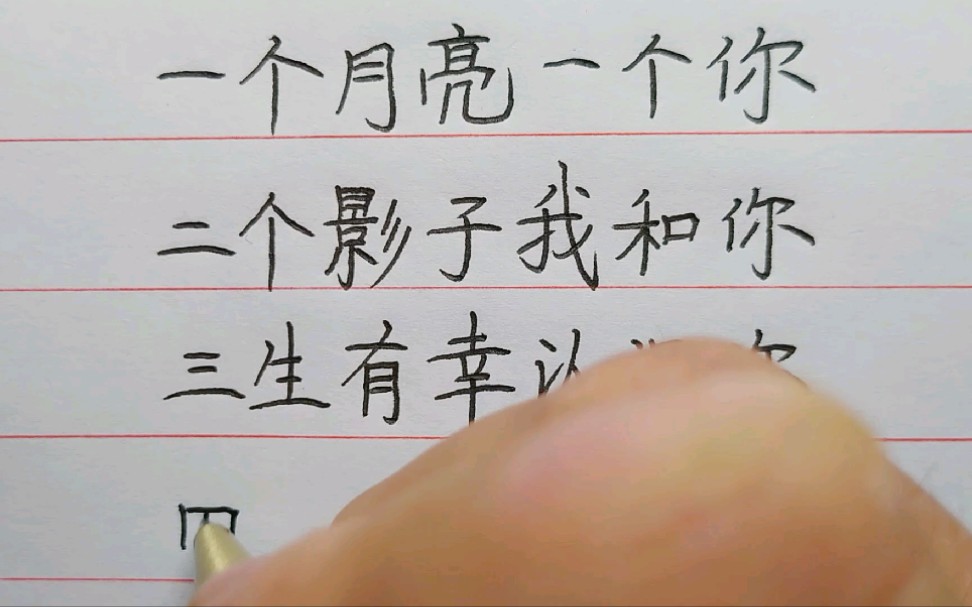 一个月亮一个你
二个影子我和你
三生有幸